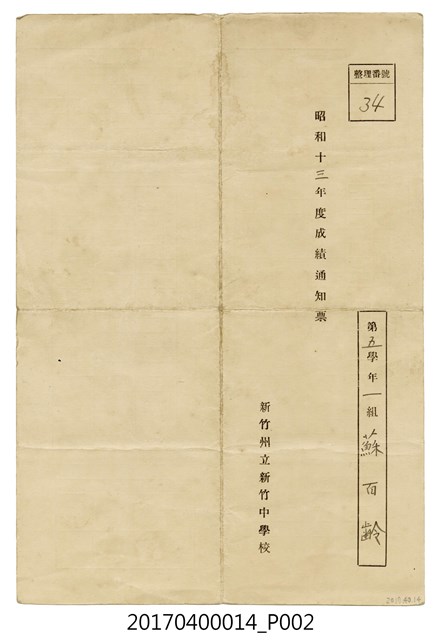 整理番號
34
昭和十三年度成績通知票
第五學年一組 蘇百齡
新竹州立新竹中學校
20170400014_P002